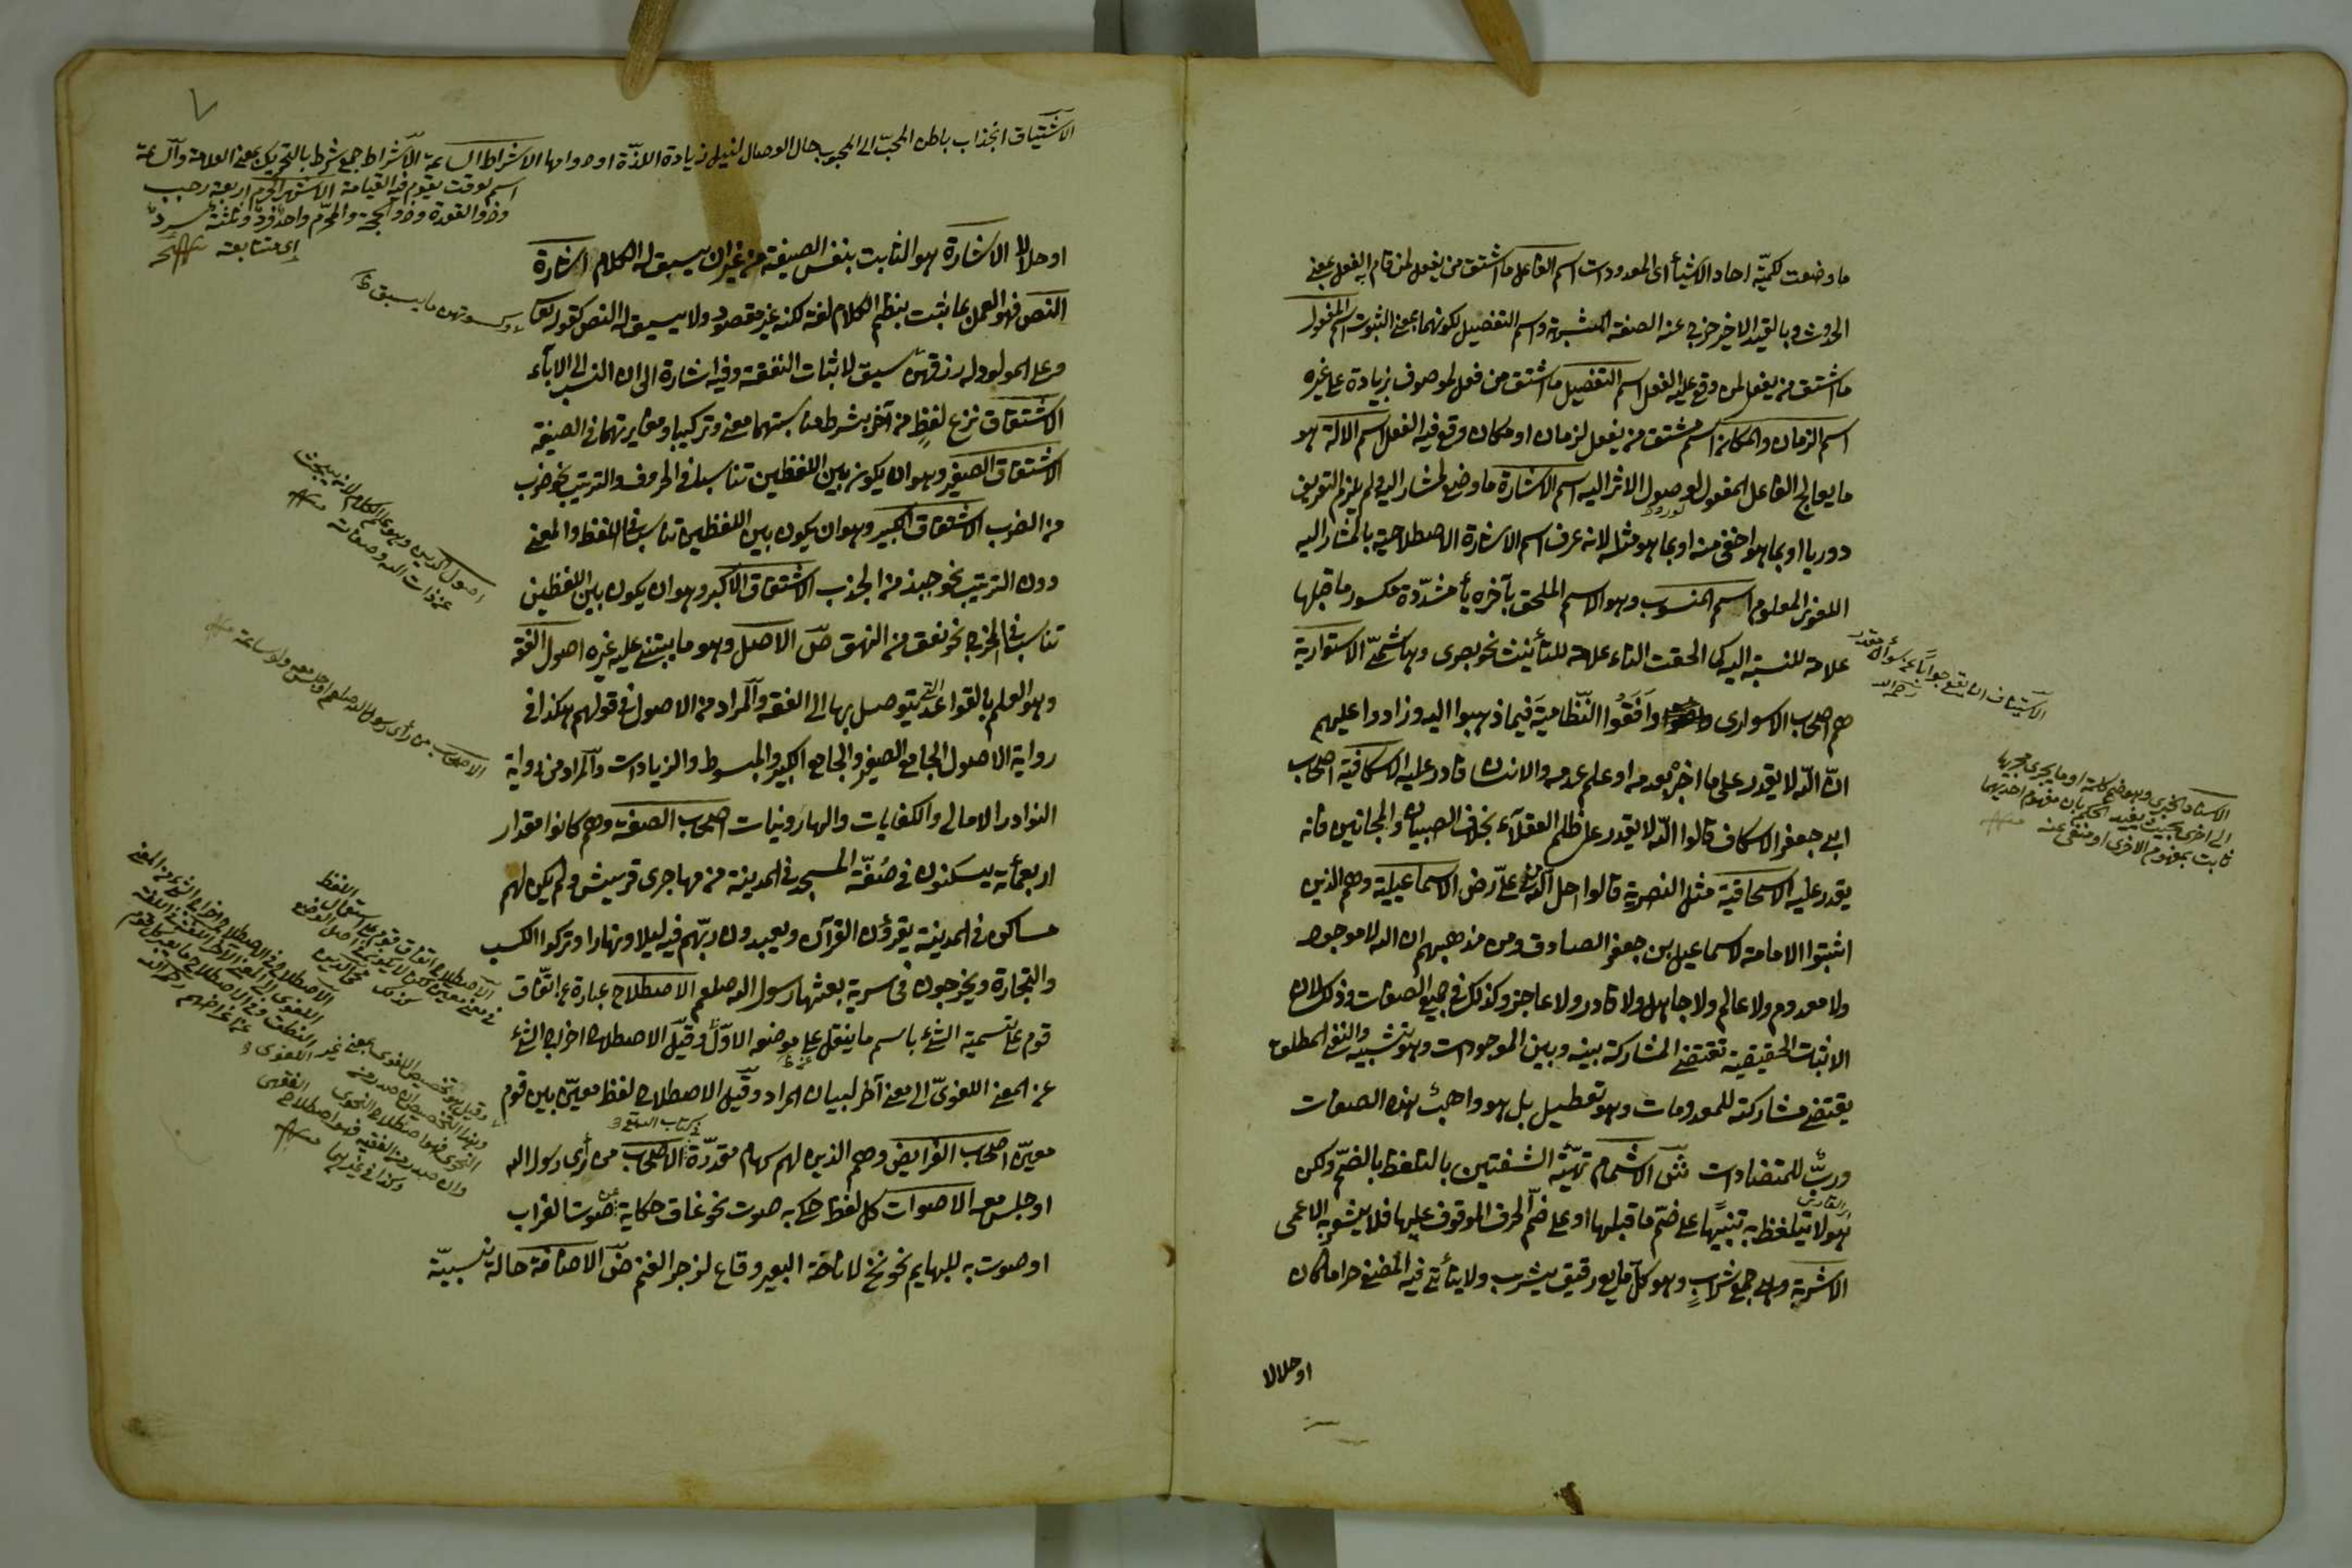 ما وضعت لكميّة احاد الاشياء اى المعدودات اسم الفاعل ما اشتق من يفعل لمن قام به الفعل بمعنى
الحدوث وبالقيد الاخير خرج عنه الصفة المشبهة واسم التفضيل لكونهما بمعنى الثبوت اسم المفعول
ما اشتق من يفعل لمن وقع عليه الفعل اسم التفضيل ما اشتق من فعل لموصوف بزيادة على غيره
اسم الزمان والمكان اسم مشتق من يفعل لزمان او مكان وقع فيه الفعل اسم الالة هو
ما يعالج الفاعل المفعول لوصول الاثر اليه اسم الاشارة ما وضع لمشار اليه ولم يلزم التعريف
دوريا او بما هو اخفى منه او بما هو مثله لانه عرف اسم الاشارة الاصطلاحية بالمشار اليه
اللغوى المعلوم اسم المنسوب وهو الاسم الملحق بآخره يأ مشدّدة مكسور ما قبلها
علامة للنسبة اليه كما الحقت التاء علامة للتأنيث نحو بصرى وهاشمىّ الاسوارية
هم اصحاب الاسوارى وافقوا النّظامية فيما ذهبوا اليه وزادوا عليهم
انّ اللّه لا يقدر على ما اخبر بعدمه او علم عدمه والانسان قادر عليه الاسكافية اصحاب
ابى جعفر الاسكاف قالوا اللّه لا يقدر على ظلم العقلآء بخلاف الصبيان والمجانين فانه
يقدر عليه الاسحاقية مثل النصرية قالوا حل اللّه فى علىّ رض الاسماعيلية وهم الذين
اثبتوا الامامة لاسماعيل بن جعفر الصادق ومن مذهبهم ان الله لا موجود
ولا معدوم ولا عالم ولا جاهل ولا قادر ولا عاجز وكذلك فى جميع الصفات وذلك لان
الاثبات الحقيقية تقتضى المشاركة بينه وبين الموجودات وهو تشبيه والنفى المطلق
يقتضى مشاركته للمعدومات وهو تعطيل بل هو واهب هذه الصفات
وربّ للمتضادات الاشمام تهيّئة الشفتين بالتلفظ بالضمّ ولكن
هو لا يتلفظ به تنبيها على ضمّ ما قبلها او على ضمّ الحرف الموقوف عليها فلا يشعر به الاعمى
الاشربة وهى جمع شراب وهو كلّ مايع رقيق يشرب ولا يتأتى فيه المضغ حراما كان
او حلالا
الاستيناف ان يقع جوابا عن سؤال مقدر
الاسناد الخبرى وهو ضم كلمة او ما يجرى مجريها
الى اخرى بحيث يفيد الحكم بان مفهوم احديهما
ثابت بمفهوم الاخرى او منفى عنه
الاشتياق انجذاب باطن المحبّ الى المحبوب حال الوصال لنيل زيادة اللذّة او دوامها الاشراط الساعة الاشراط جمع شرط بالتحريك بمعنى العلامة والساعة
اسم لوقت يقوم فيه القيامة الاشهر الحرم اربعة رجب
وذو القعدة وذو الحجة والمحرّم واحد فرد وثلثة سرد
اى متتابعة
او حلالا الاشارة هو الثابت بنفس الصيغة من غير ان يسبق له الكلام اشارة
النص فهو العمل بما ثبت بنظم الكلام لغة لكنه غير مقصود ولا سيق له النص كقوله تعا
وعلى المولود له رزقهن سيق لاثبات النفقة وفيه اشارة الى ان النسب الى الاباء
وكسوتهن
الاشتقاق نزع لفظ من آخر بشرط مناسبتهما معنى وتركيبا ومغايرتهما فى الصيغة
الاشتقاق الصغير وهو ان يكون بين اللفظين تناسب فى الحروف والترتيب نحو ضرب
من الضرب الاشتقاق الكبير وهو ان يكون بين اللفظين تناسب فى اللفظ والمعنى
دون الترتيب نحو جبذ من الجذب الاشتقاق الاكبر وهو ان يكون بين اللفظين
تناسب فى المخرج نحو نعق من النهق الاصل وهو ما يبتنى عليه غيره اصول الفقه
وهو العلم بالقواعد التى يتوصل بها الى الفقه والمراد من الاصول فى قولهم هكذا فى
رواية الاصول الجامع الصغير والجامع الكبير والمبسوط والزيادات والمراد من رواية
النوادر الامالى والكيفيات والهارونيات اصحاب الصفة وهم كانوا مقدار
اربعمأية يسكنون فى صُفّة المسجد فى المدينة من مهاجرى قريش ولم يكن لهم
مساكن فى المدينة يقرؤن القرآن ويعبدون ربّهم فيه ليلا ونهارا وتركوا الكسب
والتجارة ويخرجون فى سرية بعثها رسول الله صلعم الاصطلاح عبارة عن اتّفاق
قوم على تسمية الشئ باسم ما ينقل عن موضعه الاوّل وقيل الاصطلاح اخراج الشئ
عن المعنى اللغوىّ الى معنى آخر لبيان المراد وقيل الاصطلاح لفظ معيّن بين قوم
معيّن اصحاب الفرايض وهم الذين لهم سهام مقدّرة الاصحاب من رأى رسول الله
او جلس معه الاصوات كل لفظ حكى به صوت نحو غاق حكاية عن صوت الغراب
او صوت به للبهايم نحو نخ لاناخة البعير وقاع لزجر الغنم الاضافة حالة نسبيّة
اصول الدين وهو علم الكلام لانه يبحث
عن ذات الله وصفاته
الاصحاب من رأى رسول الله صلعم او جلس معه ولو ساعة
الاصطلاح اتفاق قوم على استعمال اللفظ